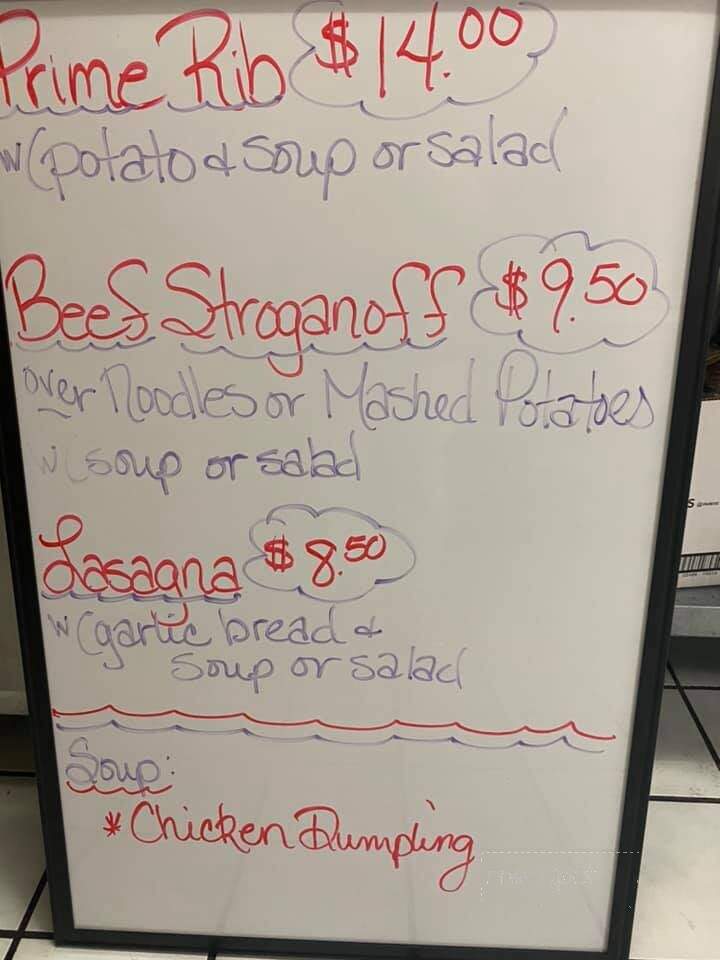 Prime Rib $14.00
w/ potato & soup or salad
Beef Stroganoff $9.50
over Noodles or Mashed Potatoes
w/ soup or salad
Lasagna $8.50
w/ garlic bread &
soup or salad
Soup:
* Chicken Dumpling